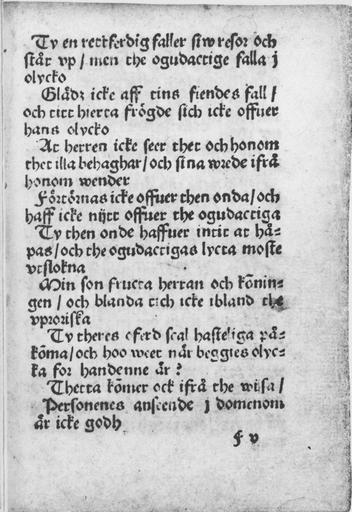 Ty en rettferdig faller siw resor och
står vp / men the ogudactige falla j
olycko
Glädz icke aff tins fiendes fall /
och titt hierta frögde sich icke offuer
hans olycko
At herren icke seer thet och honom
thet illa behaghar / och sina wrede ifrå
honom wender
Förtörnas icke offuer then onda / och
haff icke nijtt offuer the ogudactiga
Ty then onde haffuer intit at hå-
pas / och the ogudactigas lycta moste
vtslokna
Min son fructa herran och kõnin-
gen / och blanda tich icke ibland the
vproriska
Ty theres oferd scal hasteliga på-
kõma / och hoo weet när beggies olyc-
ka for handenne är ?
Thetta kõmer ock ifrå the wiisa /
Personenes anseende j domenom
är icke godh
f v